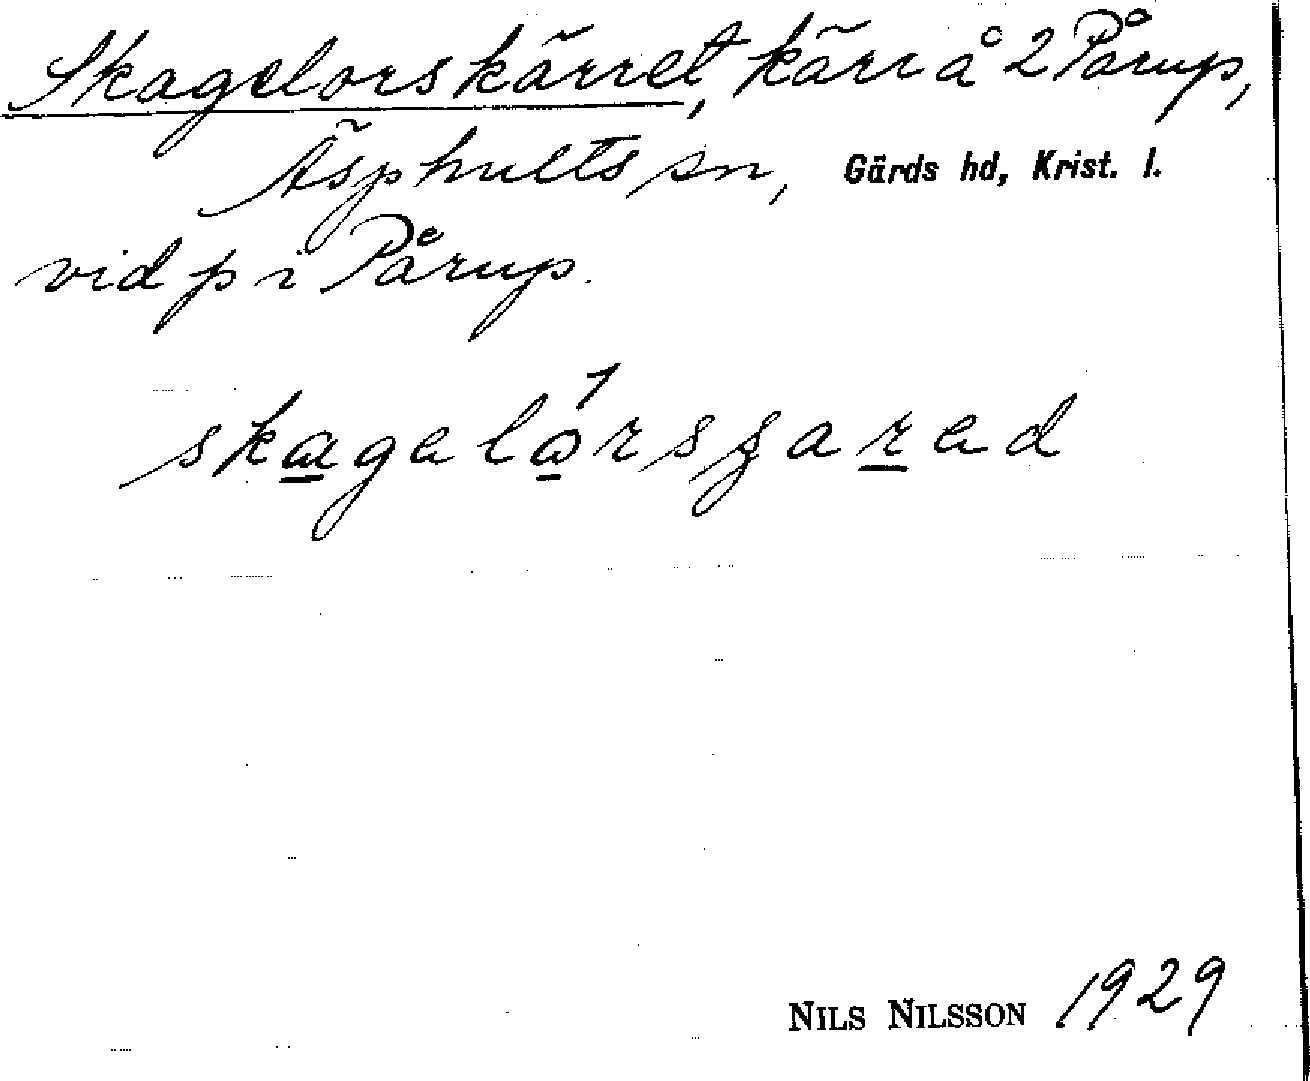 Skagelorskärret, kärr å 2 Pårup,
Äsphults sn, Gärds hd, Krist. l.
vid p i Pårup.
NILS NILSSON 1929